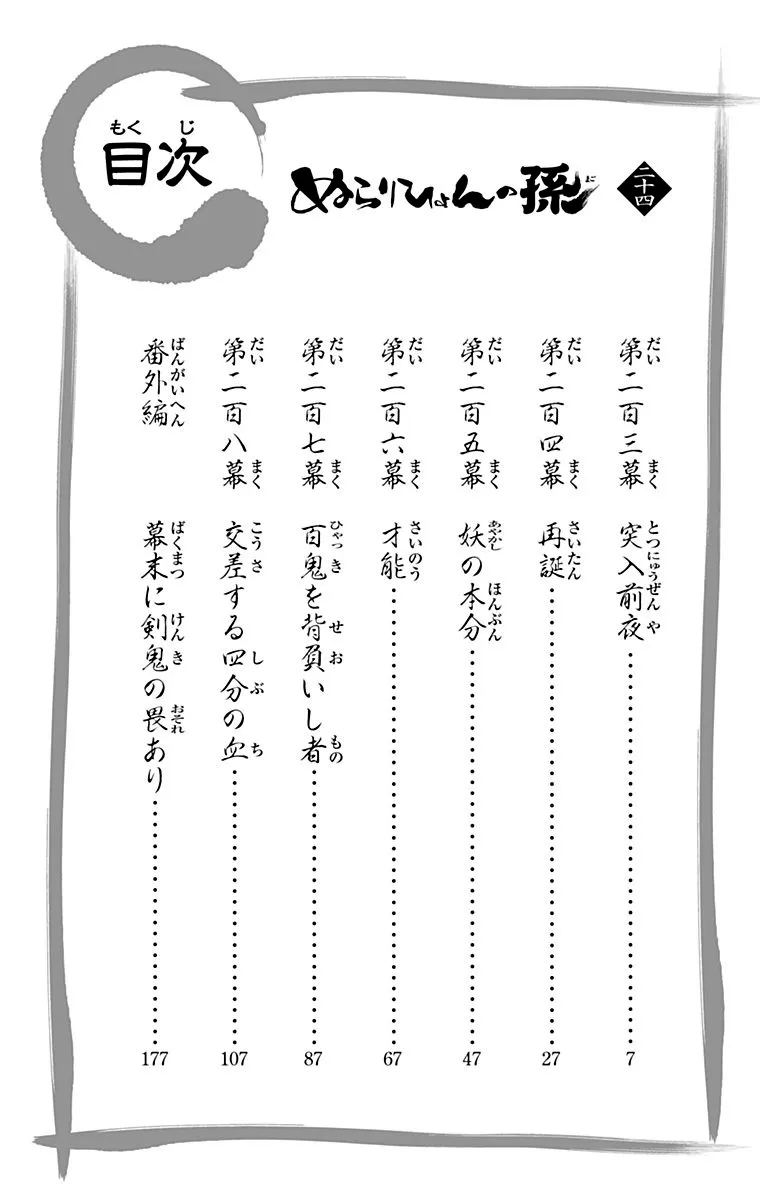 目次
もくじ
ぬらりひょんの孫
二十四
第二百三幕 突入前夜 7
だい まく とつにゅうぜんや
第二百四幕 再誕 27
だい まく さいたん
第二百五幕 妖の本分 47
だい まく あやかし ほんぶん
第二百六幕 才能 67
だい まく さいのう
第二百七幕 百鬼を背負いし者 87
だい まく ひゃっき せお もの
第二百八幕 交差する四分の血 107
だい まく こうさ しぶ ち
番外編 幕末に剣鬼の畏あり 177
ばんがいへん ばくまつ けんき おそれ